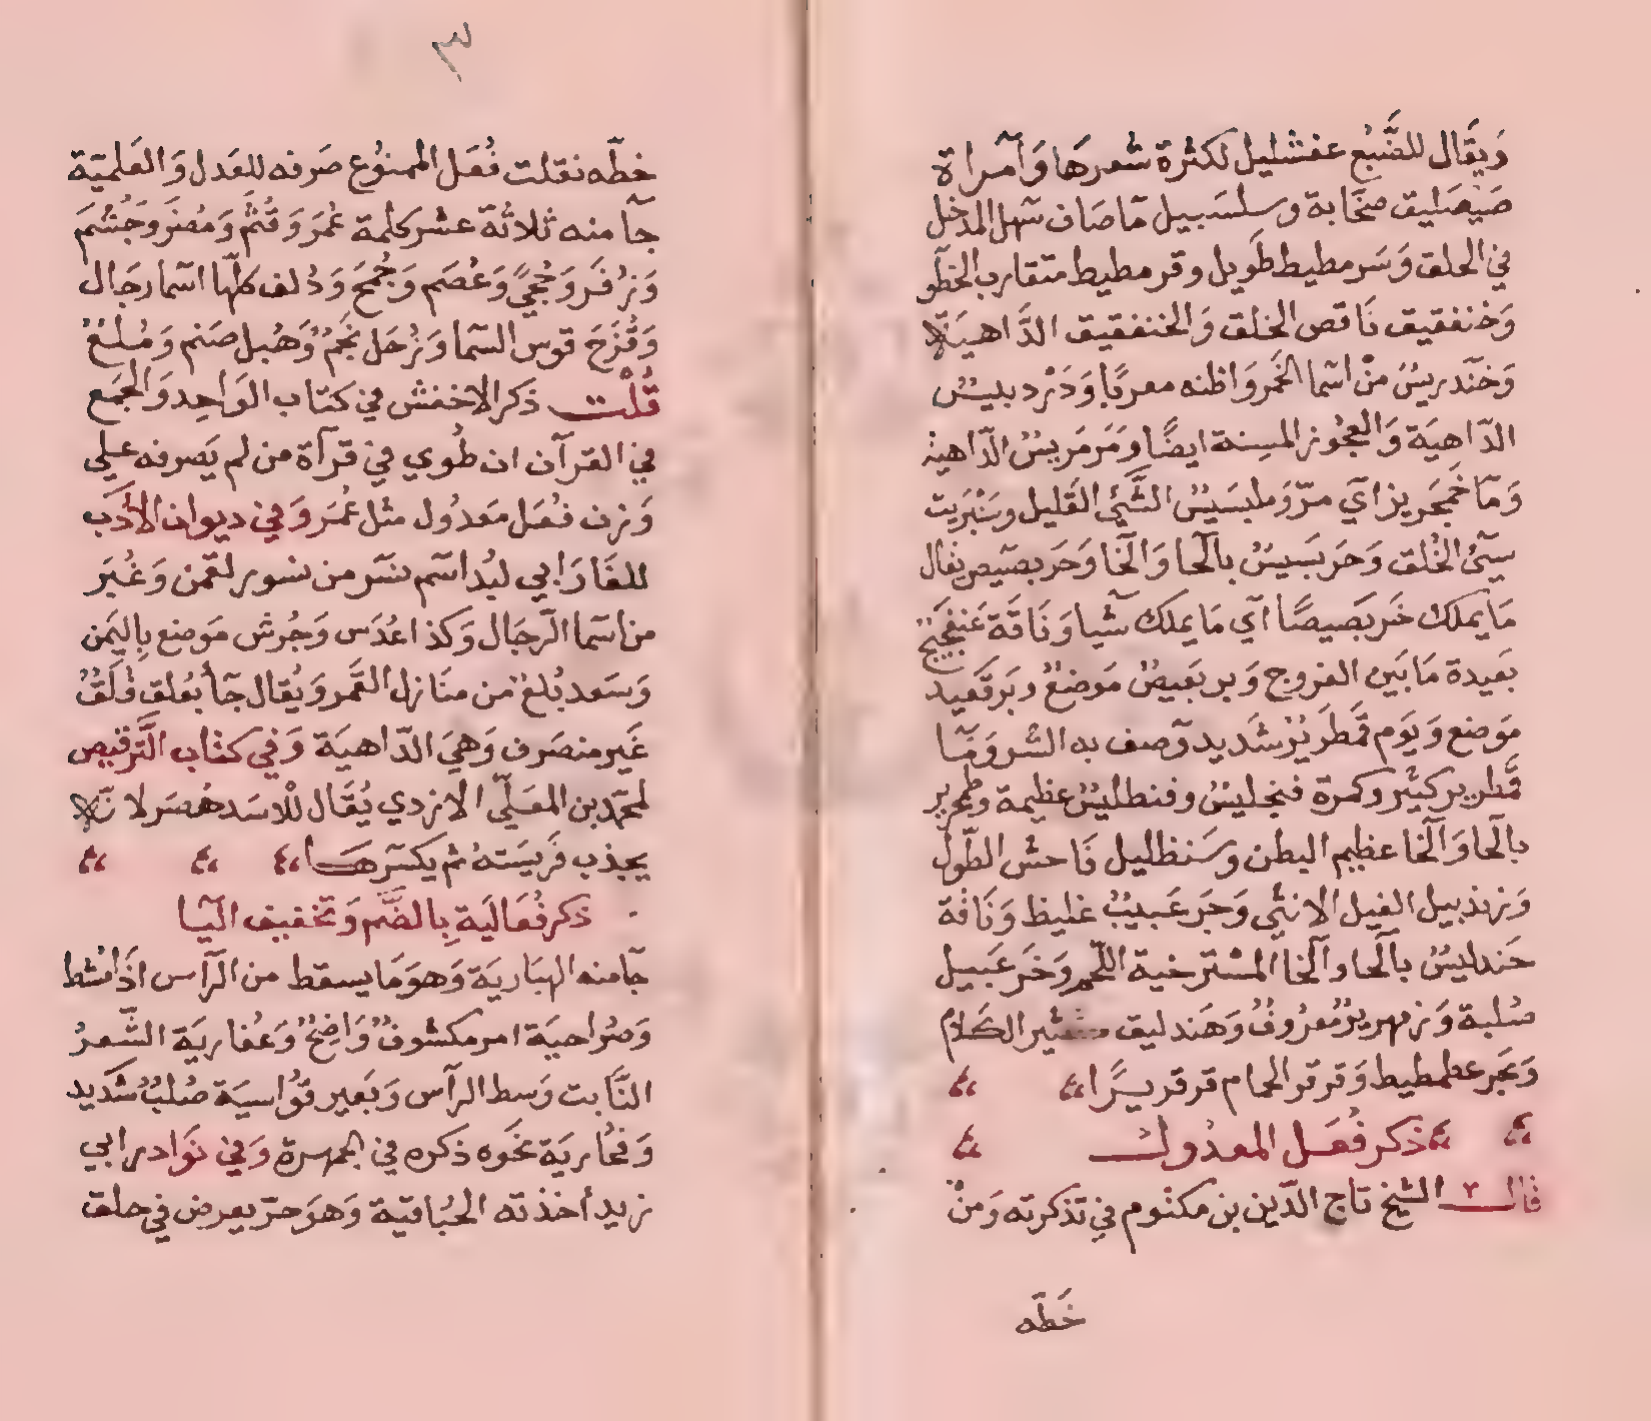 وَيقَال للضَّبُع عفشليل لكثرة شعرهَا وَآمراة
صَهصَليق صخّابة وسلسَبيل مَا صَاف سَهل المدخل
في الحلق وَسَرمطيط طَويل وقرمطيط متقارب الخطو
وَخنفقيق نَاقص الخلق وَالخنفقيق الدَّاهيَة
وَخَندريسُ منْ اسَما الخَمر وَاظنه معربًا وَدَرْدبليسُ
الدّاهيَة وَالعجُوز المسِنة ايضًا وَمَرمَريسُ الدّاهية
وَمَا خَمجَرير اي مرّ وَ الشَّيئ القَليل وسَنْبَريت
سَيئ الخُلق وَحَربَسَيسُ بالحَا وَالخَا وَحَربصَيص يقال
مَا يملك خَربَصيصًا اي مَا يملك شَيا وَنَاقَة عَنفَجيج
بَعيدة مَا بَين الفروج وَبربَعيصُ مَوضعُ وبَرقَعيد
مَوضع وَيَوم قمَطَريرُ شَديد توصف به الشر وَمَا
قمَطرير كثير وكمرة فنجليسُ وفنطليسُ عظيمة وطمحرير
بالحَا وَالخَا عظيم البطن وسَنظليل فَاحش الطّول
وَزندَبيل الفيل الانثَى وَجَرعَبيبُ غليظ وَنَاقة
حَندليسُ بالحَا والخَا المسْترخية اللّحم وَخَرعَبيل
صُلبة وَزمهريرُ مَعرُوفُ وَهَندليق كثير الكَلام
وَبَحر عطمطيط وَقرقر الحمام قرقريرًا
ذكر فُعَل المعدُول
قال الشيخ تاج الدّين بن مكتوم في تذكرته وَمنْ
خَطّه
٣
خطّه نقلت فُعَل الممنوُع صَرفه للعَدل وَالعَلميّة
جآ منه ثلاثَة عشر كلمة عُمَر وَقُثَم وَمُضَر وَجُشَم
وَزُفَر وَجُحَي وَعُصَم وَجُمَح وَدُلف كلّها اسَما رجَال
وَقُزَحَ قوس السّما وَزُحَل نجَم وَهُبل صَنم وَمُلَغ
قُلْت ذكر الاخفش في كتاب الوَاحِد وَالجمَع
في القرآن ان طُوي في قرآة من لم يَصرفه علي
وَزن فُعَل مَعدُول مثل عُمَر وَفي ديوان الاَدَب
للفَارَابي لبُد اسَم نسَر من نسور لقمن وَغُبَر
من اسَما الرّجَال وَكذا عُدَس وَجُرش مَوضع بِاليَمن
وَسَعد بُلَع من منَازل القَمر وَيُقال جَا بعُلَق فُلَق
غَير منصَرف وَهيَ الدّاهيَة وَفي كتاب التَّرقيص
لمحمّد بن المعَلّي الازدي يُقَال للاسَد هُصَر لانّه
يجذب فَريسَتهُ ثم يكسَرهَا
ذكر فُعَاليَة بِالضَّم وَتخفيف اليَا
جَا منه الهبَاريَة وَهوَ مَا يسقط من الرّأس اذَا مُشط
وَصُراحيَة امر مكشوف وَاضحُ وَعُفاريَة الشّعرُ
النّابت وَسط الرأس وَبَعير قوُاسيَة صُلبُ شَديد
وَفُخارية نحوَه ذكره في الجمهرة وَفي نَوَادر ابي
زيد أخذته الحُبَاقيَة وَهوَ يعرض في حلق